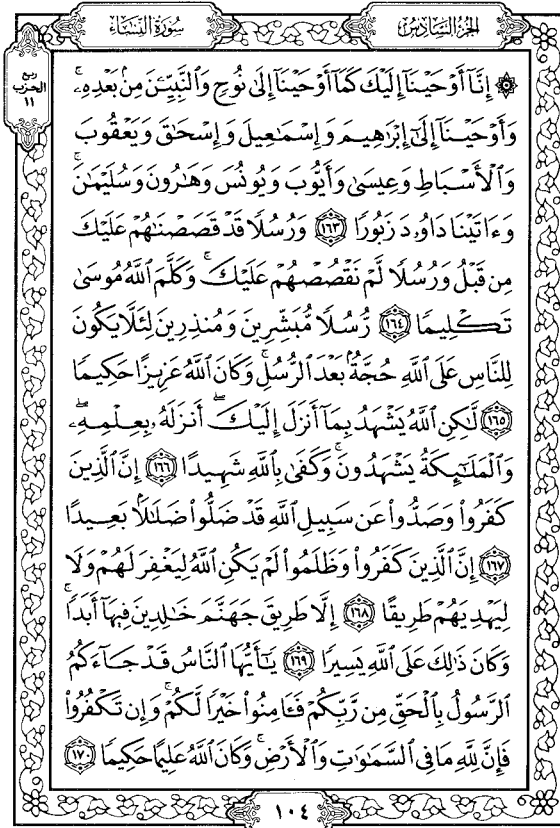 الجزء السادس
سورة النساء
ربع
الحزب
١١
۞ إِنَّآ أَوْحَيْنَآ إِلَيْكَ كَمَآ أَوْحَيْنَآ إِلَىٰ نُوحٍ وَٱلنَّبِيِّـۧنَ مِنۢ بَعْدِهِۦ ۚ
وَأَوْحَيْنَآ إِلَىٰٓ إِبْرَٰهِيمَ وَإِسْمَٰعِيلَ وَإِسْحَٰقَ وَيَعْقُوبَ
وَٱلْأَسْبَاطِ وَعِيسَىٰ وَأَيُّوبَ وَيُونُسَ وَهَٰرُونَ وَسُلَيْمَٰنَ ۚ
وَءَاتَيْنَا دَاوُۥدَ زَبُورًا ١٦٣ وَرُسُلًا قَدْ قَصَصْنَٰهُمْ عَلَيْكَ
مِن قَبْلُ وَرُسُلًا لَّمْ نَقْصُصْهُمْ عَلَيْكَ ۚ وَكَلَّمَ ٱللَّهُ مُوسَىٰ
تَكْلِيمًا ١٦٤ رُّسُلًا مُّبَشِّرِينَ وَمُنذِرِينَ لِئَلَّا يَكُونَ
لِلنَّاسِ عَلَى ٱللَّهِ حُجَّةٌۢ بَعْدَ ٱلرُّسُلِ ۚ وَكَانَ ٱللَّهُ عَزِيزًا حَكِيمًا
١٦٥ لَّٰكِنِ ٱللَّهُ يَشْهَدُ بِمَآ أَنزَلَ إِلَيْكَ ۖ أَنزَلَهُۥ بِعِلْمِهِۦ ۖ
وَٱلْمَلَٰٓئِكَةُ يَشْهَدُونَ ۚ وَكَفَىٰ بِٱللَّهِ شَهِيدًا ١٦٦ إِنَّ ٱلَّذِينَ
كَفَرُوا۟ وَصَدُّوا۟ عَن سَبِيلِ ٱللَّهِ قَدْ ضَلُّوا۟ ضَلَٰلًۢا بَعِيدًا
١٦٧ إِنَّ ٱلَّذِينَ كَفَرُوا۟ وَظَلَمُوا۟ لَمْ يَكُنِ ٱللَّهُ لِيَغْفِرَ لَهُمْ وَلَا
لِيَهْدِيَهُمْ طَرِيقًا ١٦٨ إِلَّا طَرِيقَ جَهَنَّمَ خَٰلِدِينَ فِيهَآ أَبَدًا ۚ
وَكَانَ ذَٰلِكَ عَلَى ٱللَّهِ يَسِيرًا ١٦٩ يَٰٓأَيُّهَا ٱلنَّاسُ قَدْ جَآءَكُمُ
ٱلرَّسُولُ بِٱلْحَقِّ مِن رَّبِّكُمْ فَـَٔامِنُوا۟ خَيْرًا لَّكُمْ ۚ وَإِن تَكْفُرُوا۟
فَإِنَّ لِلَّهِ مَا فِى ٱلسَّمَٰوَٰتِ وَٱلْأَرْضِ ۚ وَكَانَ ٱللَّهُ عَلِيمًا حَكِيمًا ١٧٠
١٠٤